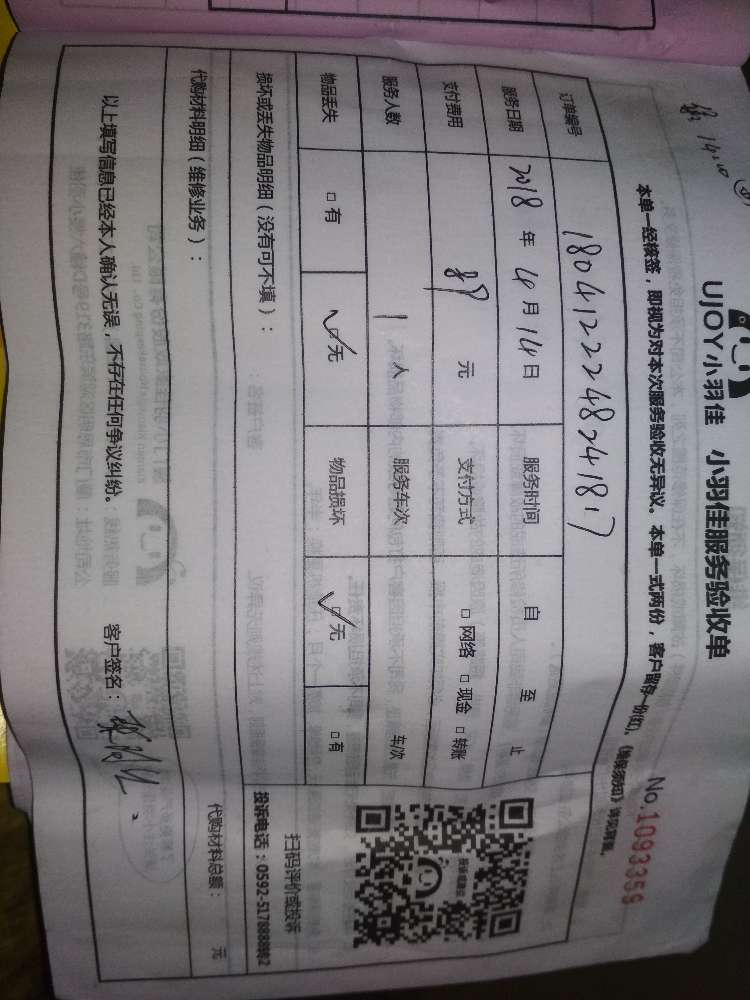 UJOY小羽佳 小羽佳服务验收单
No.1093356
本单一经核签,即视为对本次服务验收无异议。本单一式两份,客户留存一份(红)。《确保须知》详见背面。
订单编号 1804122248241817
服务日期 2018 年 4 月 14 日 服务时间 自 至 止
支付费用 元 支付方式 □ 网络 □ 现金 □ 转账
服务人数 1 人 服务车次 车/次
物品丢失 □ 有 ☑ 无 物品损坏 ☑ 无 □ 有
扫码评价或投诉
投诉电话:0592-5178888转2
损坏或丢失物品明细(没有可不填):
代购材料明细(维修业务): 代购材料总额: 元
以上填写信息已经本人确认无误,不存在任何争议纠纷。 客户签名: